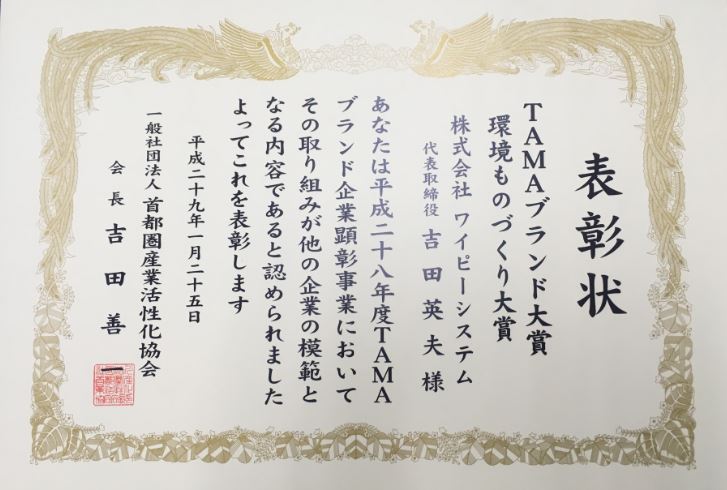 表彰状
TAMAブランド大賞
環境ものづくり大賞
株式会社 ワイピーシステム
代表取締役 吉田英夫様
あなたは平成二十八年度TAMA
ブランド企業顕彰事業において
その取り組みが他の企業の模範と
なる内容であると認められました
よってこれを表彰します
平成二十九年一月二十五日
一般社団法人 首都圏産業活性化協会
会長 吉田善一